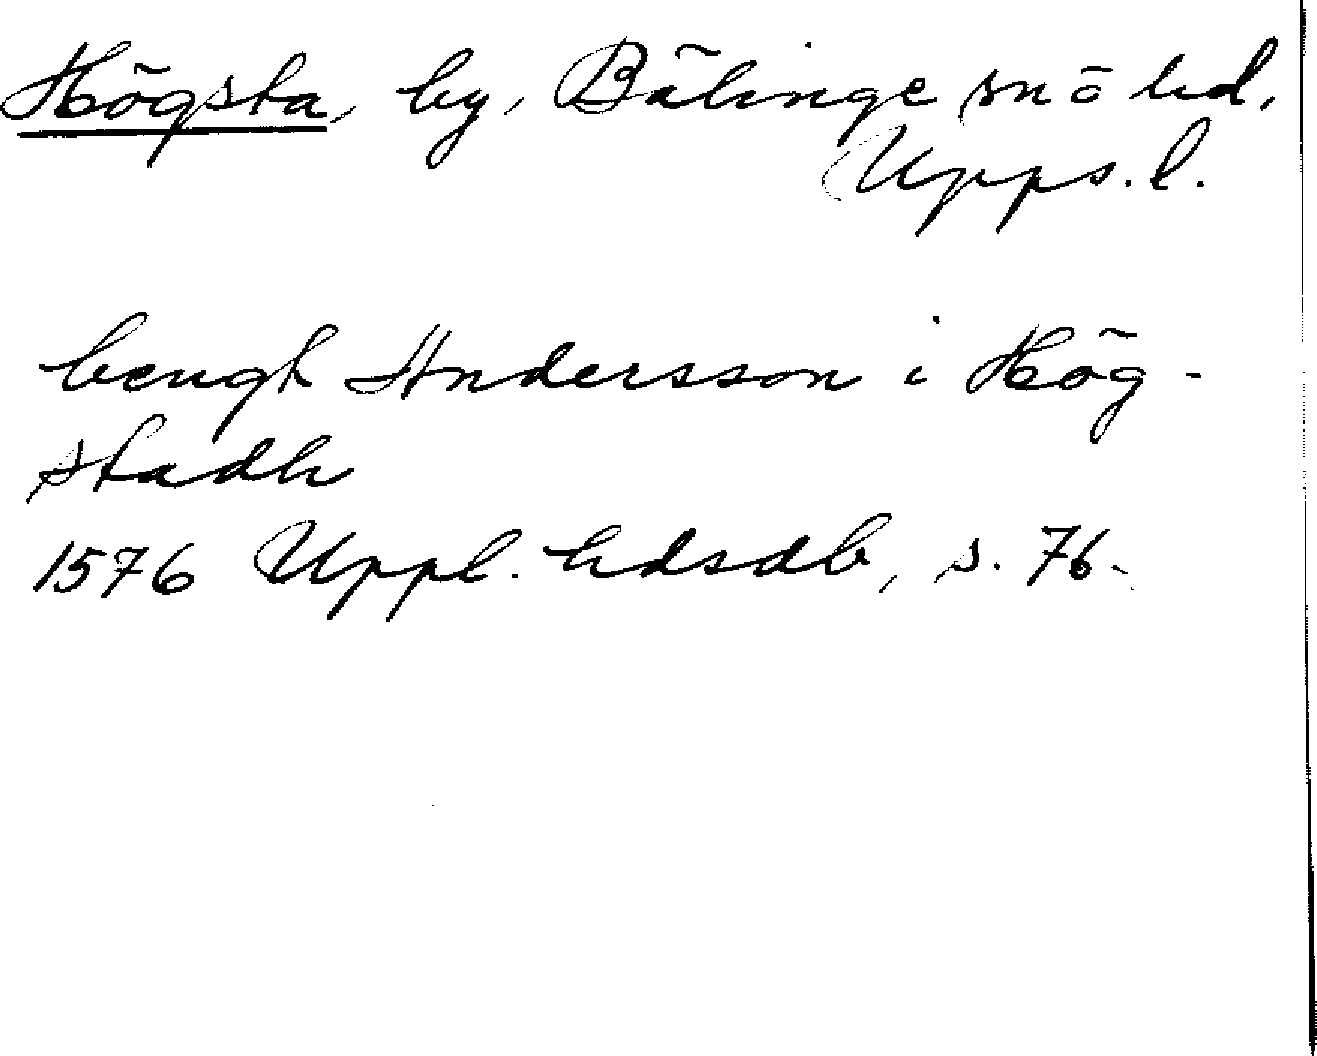 Högsta, by, Bälinge sn o hd,
Upps. l.
bengt Andersson i Hög-
stadh
1576 Uppl. hdsdb, s. 76.